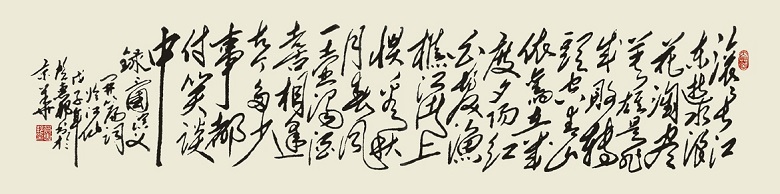 滚滚长江
东逝水浪
花淘尽
英雄是非
成败转
头空青山
依旧在几
度夕阳红
白发渔
樵江渚上
惯看秋
月春风
一壶浊酒
喜相逢
古今多少
事都
付笑谈
中
录三国演义
开篇词
临江仙
戊子年
书于
京华